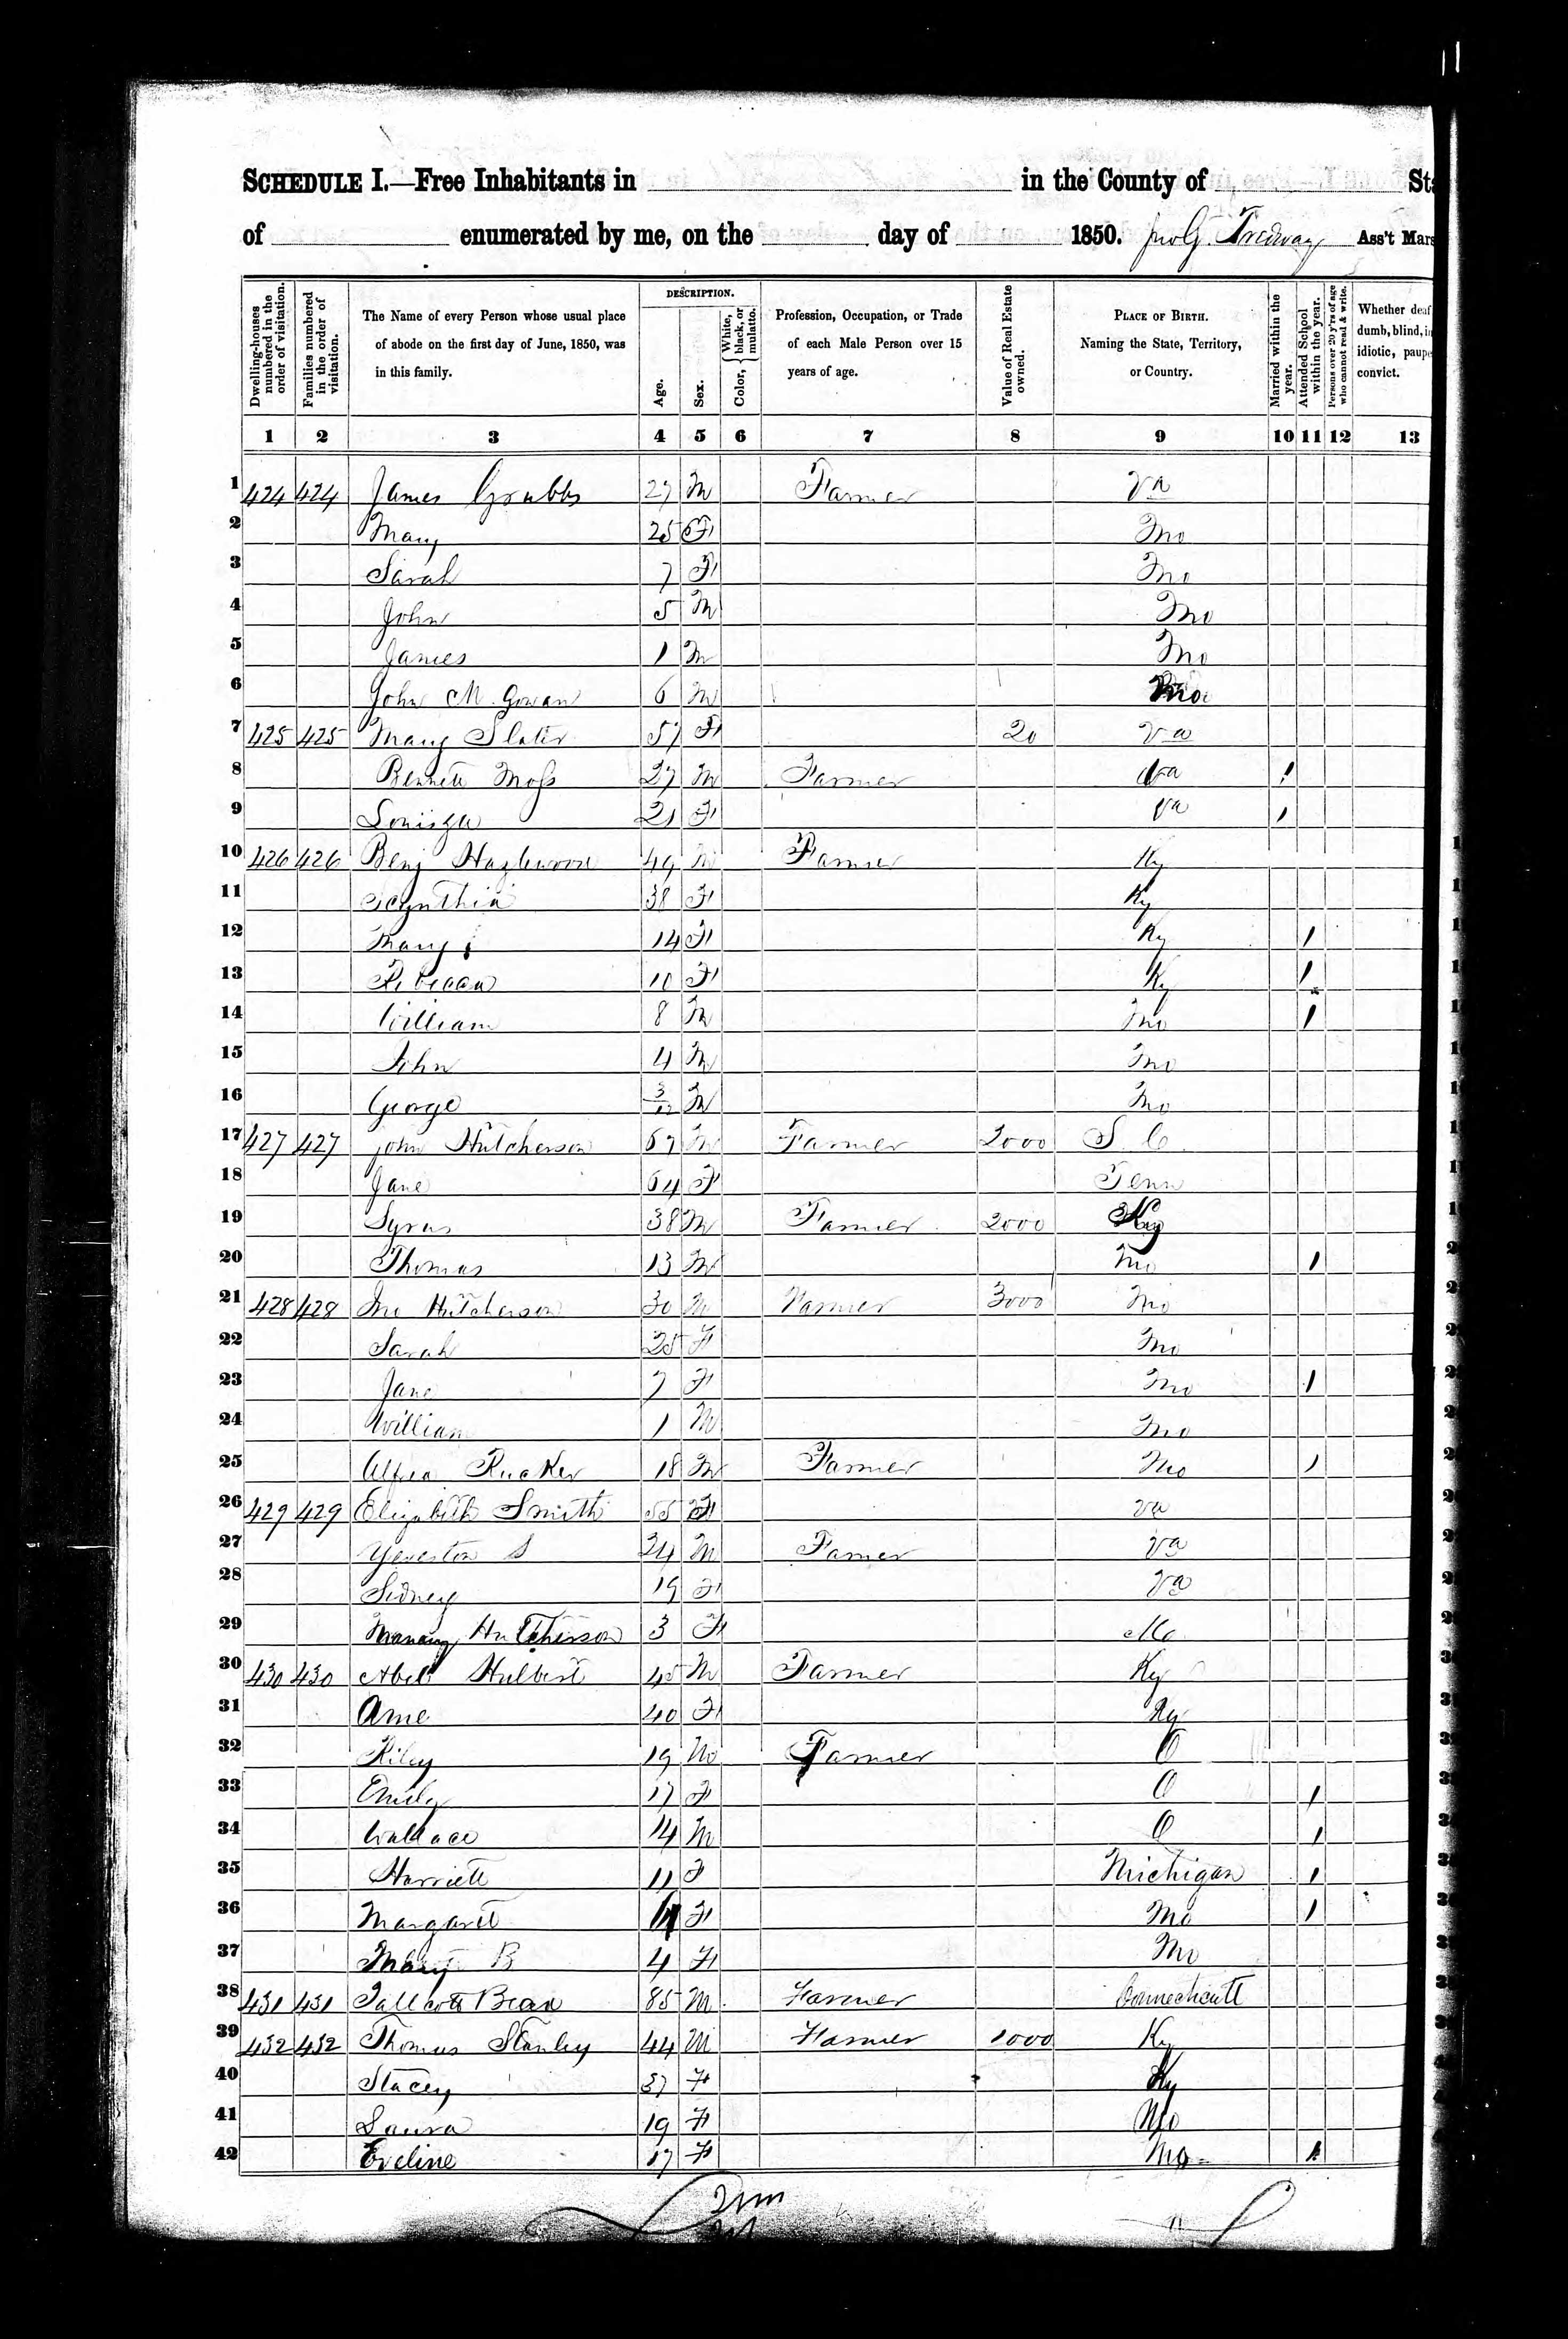 SCHEDULE I.—Free Inhabitants in in the County of Sta
of enumerated by me, on the day of 1850. Jno G. Tredway Ass't Mars
Dwelling-houses numbered in the order of visitation.
Families numbered in the order of visitation.
The Name of every Person whose usual place of abode on the first day of June, 1850, was in this family.
DESCRIPTION.
Age.
Sex.
Color, White, black, or mulatto.
Profession, Occupation, or Trade of each Male Person over 15 years of age.
Value of Real Estate owned.
PLACE OF BIRTH. Naming the State, Territory, or Country.
Married within the year.
Attended School within the year.
Persons over 20 y'rs of age who cannot read & write.
Whether deaf dumb, blind, in idiotic, paupe convict.
1 2 3 4 5 6 7 8 9 10 11 12 13
1 424 424 James Grubbs 27 M Farmer Va
2 Mary 25 F Mo
3 Sarah 7 F Mo
4 John 5 M Mo
5 James 1 M Mo
6 John M. Gowan 6 M Mo
7 425 425 Mary Slater 57 F 20 Va
8 Bennett Moss 27 M Farmer Va 1
9 Louisza 21 F Va 1
10 426 426 Benj Hazlewood 49 M Farmer Ky
11 Scynthia 38 F Ky
12 Mary 14 F Ky 1
13 Rebecca 10 F Ky 1
14 William 8 M Mo 1
15 John 4 M Mo
16 George 3/12 M Mo
17 427 427 John Hutcherson 67 M Farmer 2000 S. C.
18 Jane 64 F Tenn
19 Syrus 38 M Farmer 2000 Ky
20 Thomas 13 M Mo 1
21 428 428 Jno Hutcherson 30 M Farmer 3000 Mo
22 Sarah 25 F Mo
23 Jane 7 F Mo 1
24 William 1 M Mo
25 Rucker 18 M Farmer Mo 1
26 429 429 Elizabeth Smith 55 F Va
27 S 24 M Farmer Va
28 Sidney 19 F Va
29 Hutcherson 3 F Mo
30 430 430 Abel Hulbert 45 M Farmer Ky
31 Ame 40 F Ky
32 Riley 19 M Farmer O
33 Emily 17 F O 1
34 Wallace 14 M O 1
35 Harriett 11 F Michigan 1
36 Margarett F Mo 1
37 Mary B 4 F Mo
38 431 431 Tallcott 85 M Farmer Connecticutt
39 432 432 Thomas Stanley 44 M Farmer 1000 Ky
40 Stacey 37 F Ky
41 Laura 19 F Mo
42 Eveline 17 F Mo 1